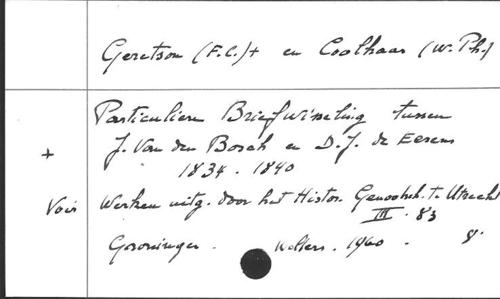 Geretson (F.C.)+ en Coolhaas (W. Ph.)
Particuliere Briefwisseling tussen
+ J. Van den Bosch en D.J. de Eerens
1834 - 1840
Voir Werken uitg. door het Histor. Genootsch. te Utrecht
III. 83
Groningen - Wolters. 1960. 8°